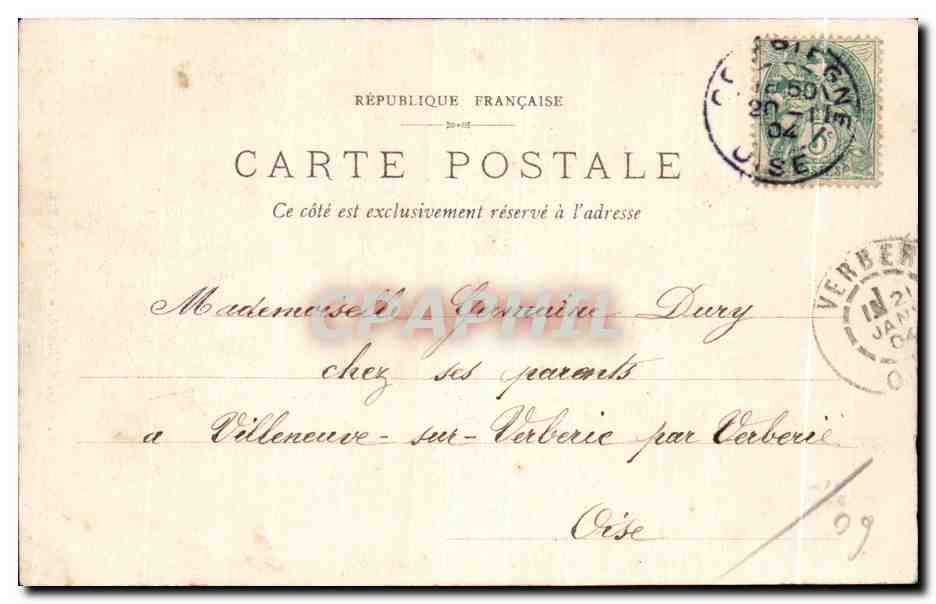 RÉPUBLIQUE FRANÇAISE
CARTE POSTALE
Ce côté est exclusivement réservé à l'adresse
OISE
04
5c
VERBER
21
JANV
04
O
CPAPHIL
Mademoiselle Germaine Dury
chez ses parents
a Villeneuve-sur-Verberie par Verberie
Oise
09